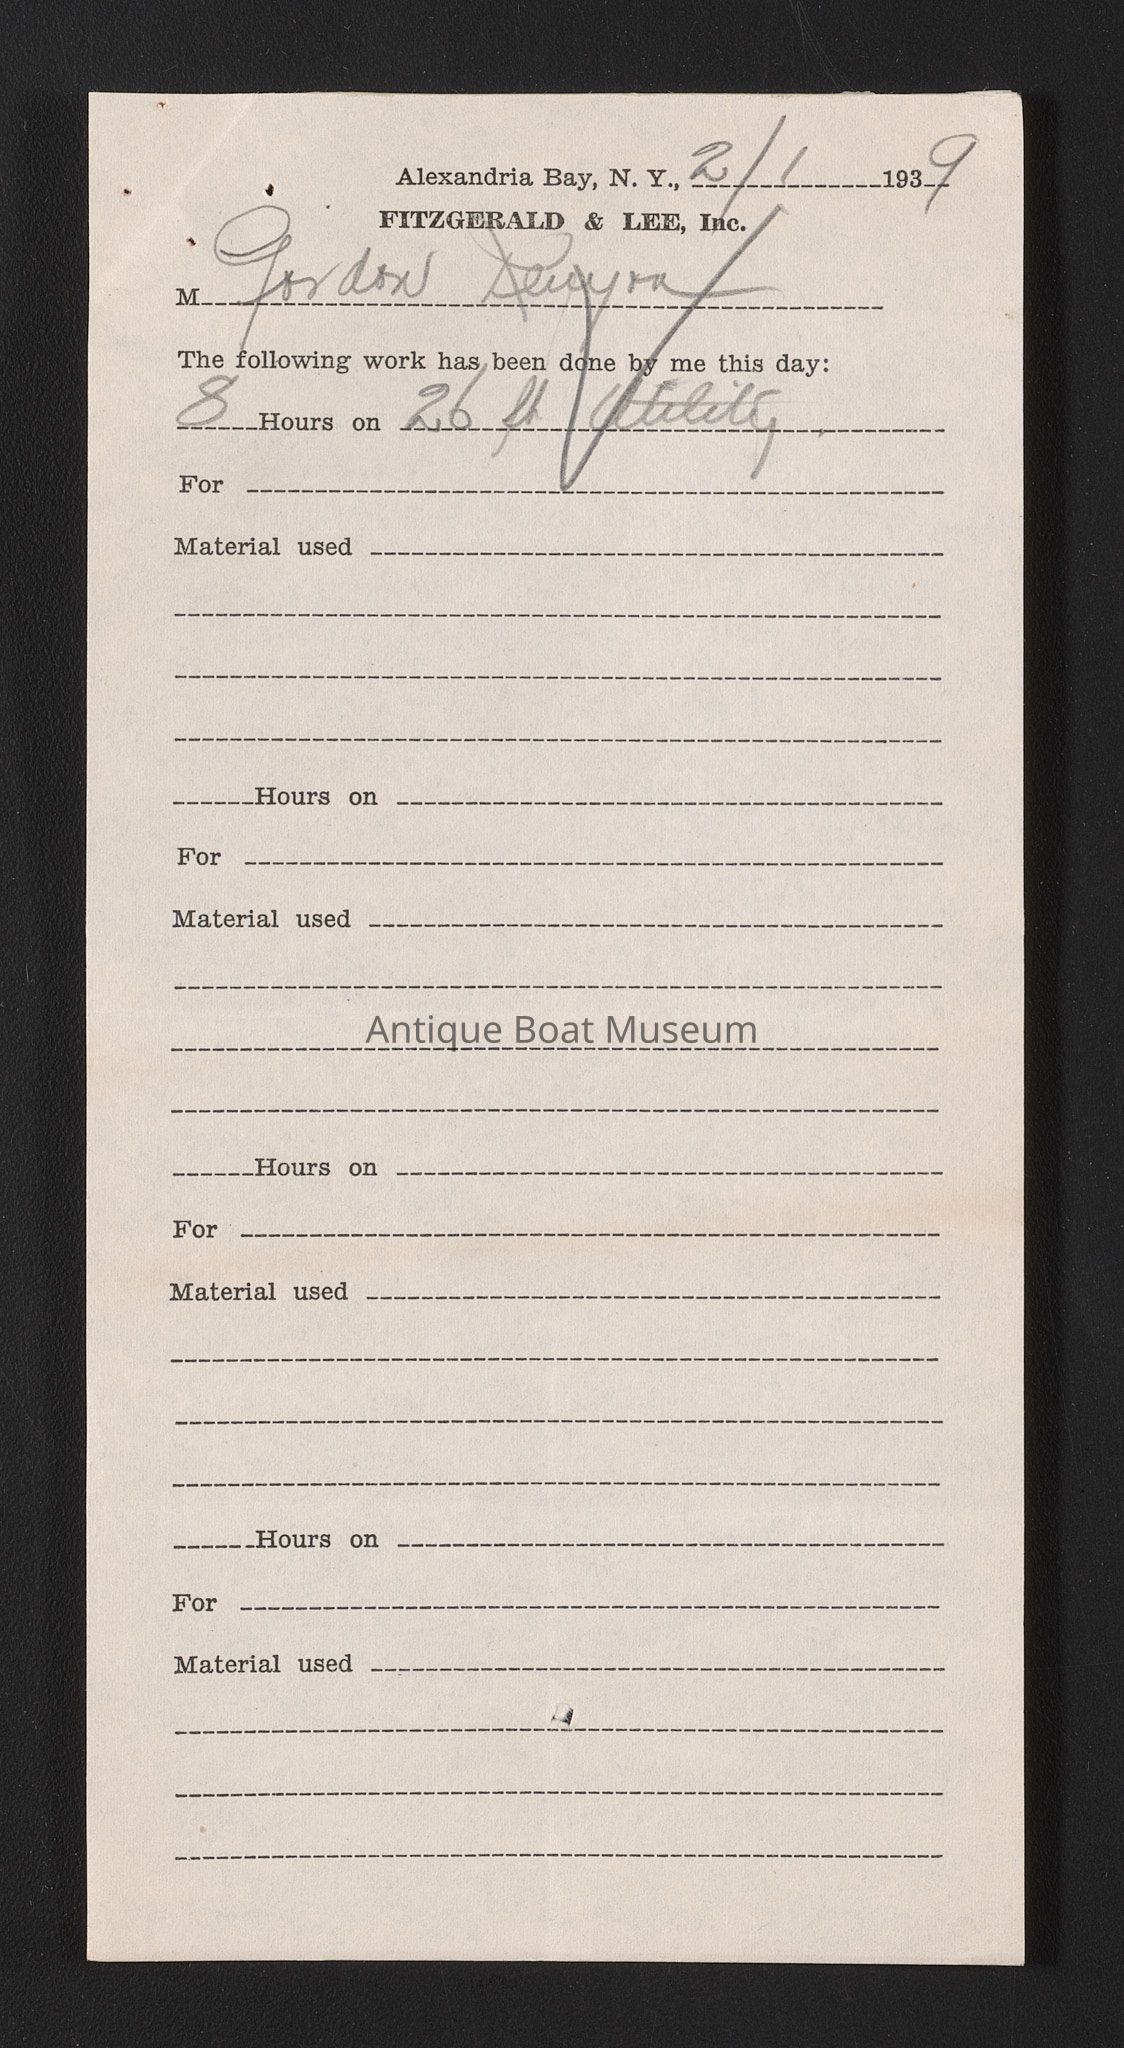 Alexandria Bay, N. Y., 2/1 1939
FITZGERALD & LEE, Inc.
M Gordon Kenyon
The following work has been done by me this day:
8 Hours on 26 ft Utility.
For
Material used
Hours on
For
Material used
Antique Boat Museum
Hours on
For
Material used
Hours on
For
Material used